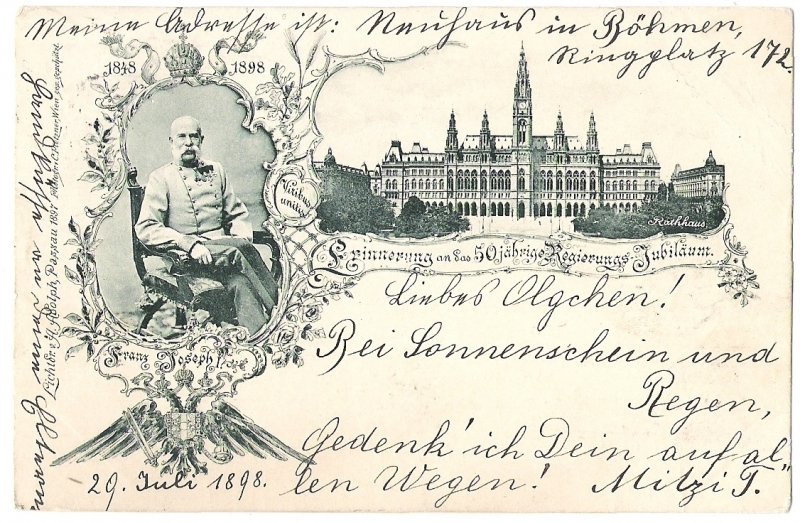 Meine Adresse ist: Neuhaus in Böhmen,
Ringplatz 172.
1848 1898
Viribus
unitis
Rathhaus
Erinnerung an das 50jährige Regierungs-Jubiläum.
Franz Joseph I.
Liebes Olgchen!
Bei Sonnenschein und
Regen,
Gedenk' ich Dein auf al¬
len Wegen! Mitzi T.
29. Juli 1898.
Lichtdr. H. Adolph, Passau 1897
Wien